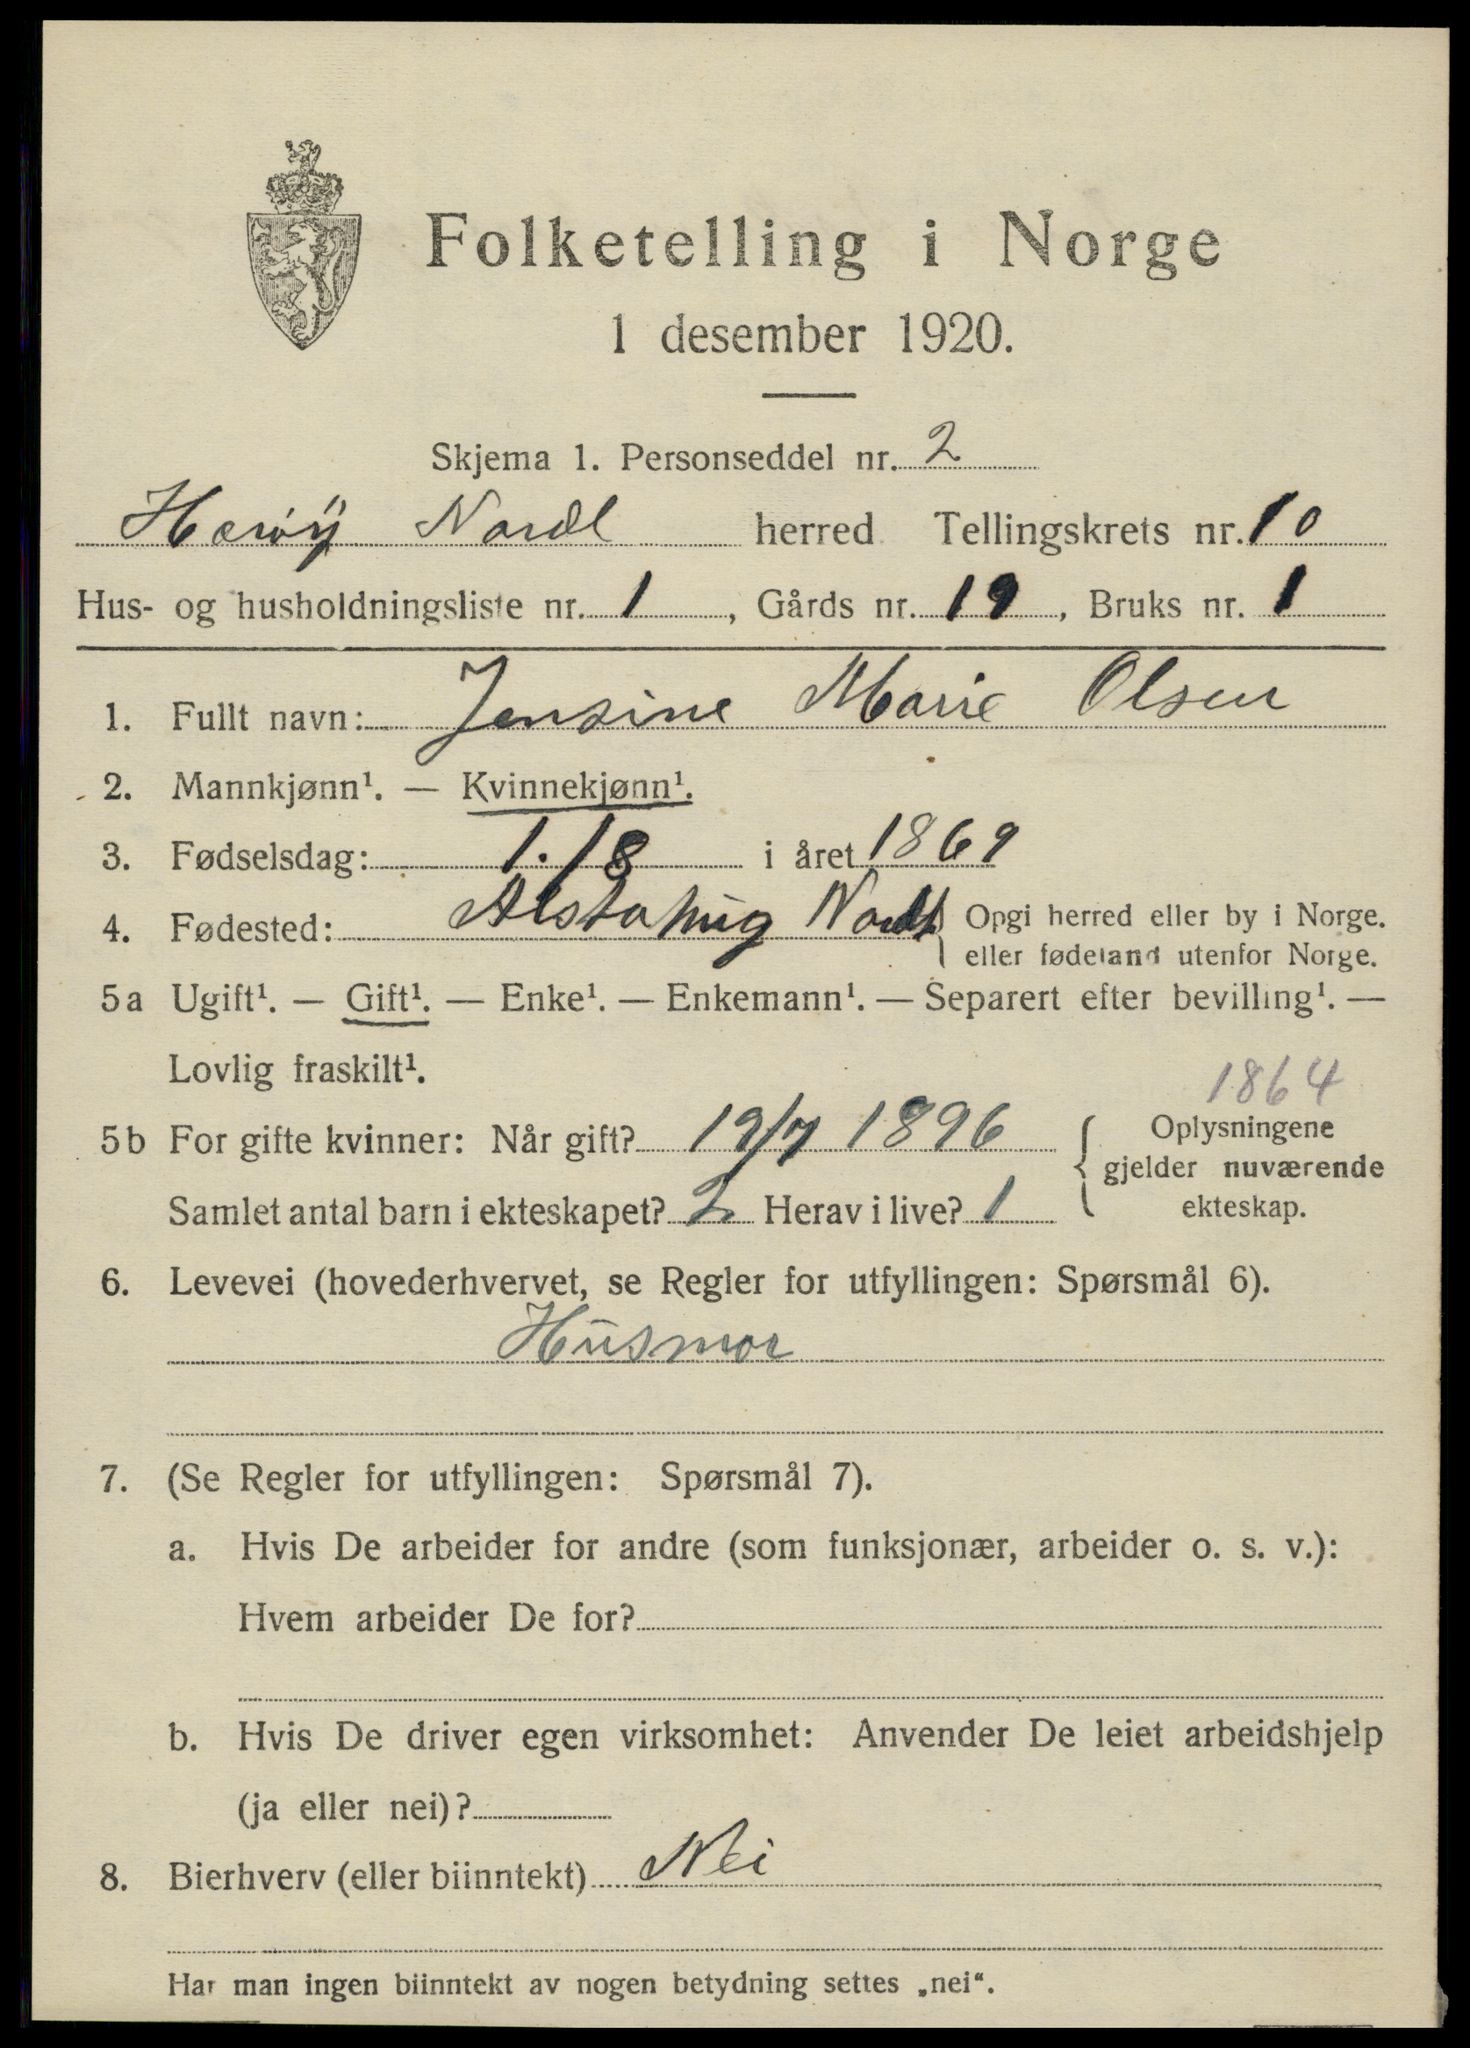 Folketelling i Norge
1 desember 1920.
Skjema 1. Personseddel nr. 2
Herøy Nordl herred Tellingskrets nr. 10
Hus- og husholdningsliste nr. 1, Gårds nr. 19, Bruks nr. 1
1. Fullt navn: Jensine Marie Olsen
2. Mannkjønn¹. — Kvinnekjønn¹.
3. Fødselsdag: 1. /8 i året 1869
4. Fødested: Alstahug Nordl { Opgi herred eller by i Norge.
eller fødeland utenfor Norge.
5a Ugift¹. — Gift¹. — Enke¹. — Enkemann¹. — Separert efter bevilling¹. —
Lovlig fraskilt¹.
1864
5b For gifte kvinner: Når gift? 19/7 1896 { Oplysningene
gjelder nuværende
Samlet antal barn i ekteskapet? 2 Herav i live? 1 ekteskap.
6. Levevei (hovederhvervet, se Regler for utfyllingen: Spørsmål 6).
Husmor
7. (Se Regler for utfyllingen: Spørsmål 7).
a. Hvis De arbeider for andre (som funksjonær, arbeider o. s. v.):
Hvem arbeider De for?
b. Hvis De driver egen virksomhet: Anvender De leiet arbeidshjelp
(ja eller nei)?
8. Bierhverv (eller biinntekt) Nei
Har man ingen biinntekt av nogen betydning settes „nei“.